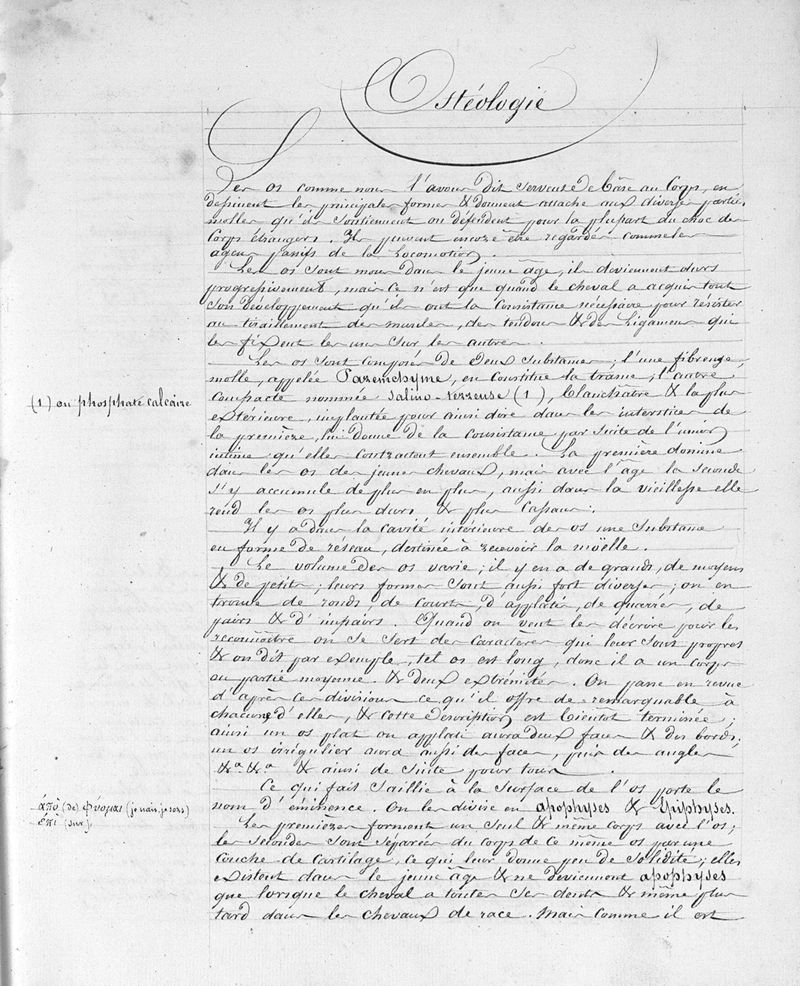 Ostéologie
Les os comme nous l'avons dit servent de bâse au Corps, en
dessinent les principales formes & donnent attache aux diverses parties
molles qu'ils soutiennent ou défendent pour la plupart du choc des
Corps étrangers. Ils peuvent encore être regardés comme les
agens passifs de la Locomotion.
Les os sont mous dans le jeune âge, ils deviennent durs
progressivement, mais ce n'est que quand le cheval a acquis tout
son développement qu'ils ont la Consistance nécessaire pour résister
au tiraillement des muscles, des tendons & des Ligamens qui
les fixent les uns sur les autres.
Les os sont composés de deux substances; l'une fibreuse,
molle, appelée Parenchyme, en Constitue la trame; l'autre
(1) ou phosphate calcaire
compacte nommée salino-terreuse (1), blanchâtre & la plus
extérieure, implantée pour ainsi dire dans les interstices de
la première, lui donne de la consistance par suite de l'union
intime qu'elles contractent ensemble. La première domine
dans les os des jeunes chevaux, mais avec l'age la seconde
s'y accumule de plus en plus, aussi dans la vieillesse elle
rend les os plus durs & plus cassans.
Il y a dans la cavité intérieure des os une substance
en forme de réseau, destinée à recevoir la moëlle.
Le volume des os varie; il y en a de grands, de moyens
& de petits; leurs formes sont aussi fort diverses; on en
trouve de ronds, de courts, d'applatis, de quarrés, de
pairs & d'impairs. Quand on veut les décrire pour les
reconnaître on se sert des caractères qui leur sont propres
& on dit par exemple, tel os est long, donc il a un corps
ou partie moyenne & deux extrémités. On passe en revue
d'après ces divisions ce qu'il offre de remarquable à
chacune d'elles, & cette description est bientot terminée;
ainsi un os plat ou applati aura deux faces & des bords;
un os irrégulier aura aussi des faces, puis des angles
&a &a & ainsi de suite pour tous.
Ce qui fait saillie à la surface de l'os porte le
ἀπὸ (de) φύομαι (je nais, je sors)
nom d'éminence. On les divise en apophyses & épiphyses.
ἐπὶ (sur).
Les premières forment un seul & même corps avec l'os;
les secondes sont séparées du corps de ce même os par une
couche de cartilage, ce qui leur donne peu de solidité; elles
existent dans le jeune âge & ne deviennent apophyses
que lorsque le cheval a toutes ses dents & même plus
tard dans les chevaux de race. Mais comme il est